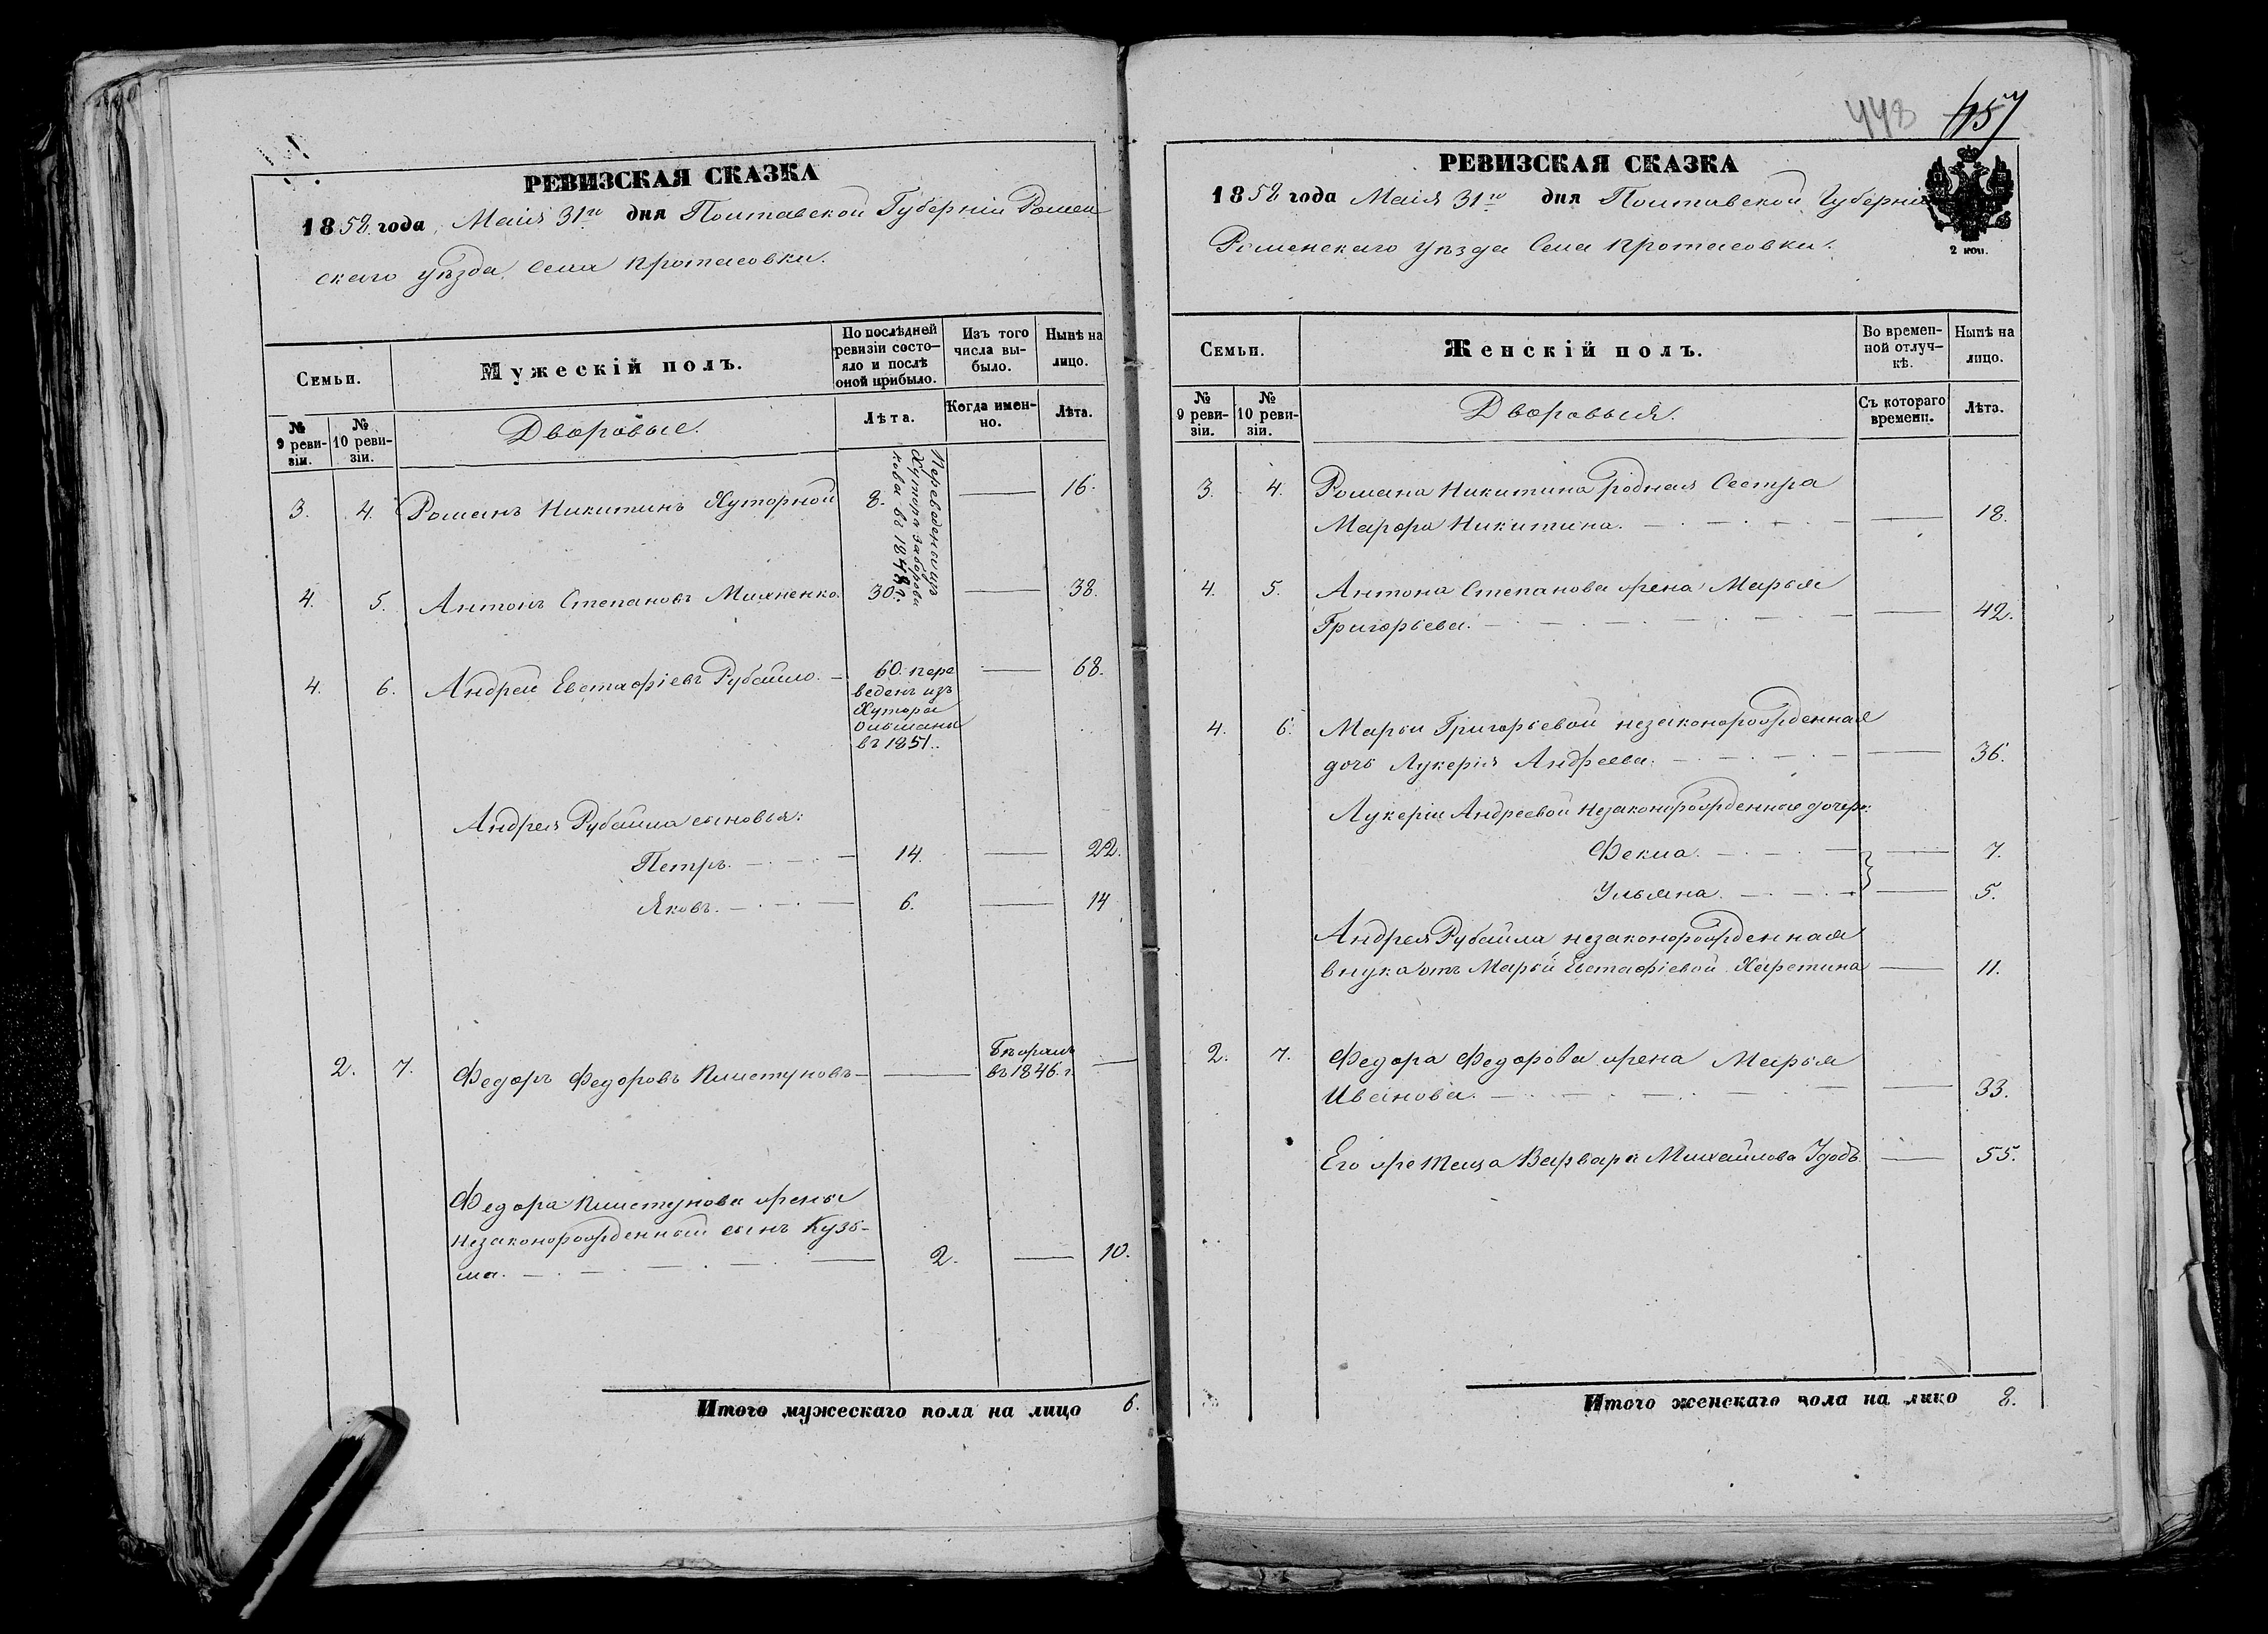 РЕВИЗСКАЯ СКАЗКА
1858 года Маія 31го дня Полтавской Губерніи Ромен
скаго уѣзда Села Протасовки.
Семьи.
Мужескій полъ.
По послѣдней ревизіи состо-
яло и послѣ
оной прибыло.
Изъ того
числа вы-
было.
Нынѣ на
лицо.
№
9 реви-
зіи.
№
10 реви-
зіи.
Дворовые.
Лѣта.
Когда имен-
но.
Лѣта.
3. 4. Романъ Никитинъ Хуторной 8. — 16.
Переведены изъ
Хутора
въ 1848 г.
4. 5. Антонъ Степановъ Михненко 30. — 38.
4. 6. Андрей Евстафіевъ Рубайло. — 60. пере — 68.
веденъ изъ
Хутора
Ольшаны
въ 1851.
Андрея Рубайла сыновья:
Петръ. 14. — 22.
Яковъ. 6. — 14
2. 7. Федоръ Федоровъ Пшетуновъ — — Бѣжалъ —
въ 1846. г.
Федора Пшетунова жены
незаконорожденный сынъ Кузь-
ма. 2. — 10.
Итого мужескаго пола на лицо 6.
448 457
РЕВИЗСКАЯ СКАЗКА
1858 года Маія 31го дня Полтавской Губерніи
Роменскаго уѣзда Села Протасовки.
2 коп.
Семьи.
Женскій полъ.
Во времен-
ной отлуч-
кѣ.
Нынѣ на
лицо.
№
9 реви-
зіи.
№
10 реви-
зіи.
Дворовыя.
Съ котораго
времени.
Лѣта.
3. 4. Романа Никитина родная Сестра
Марфа Никитина. — 18.
4. 5. Антона Степанова жена Марья
Григорьева. — 42.
4. 6. Марьи Григорьевой незаконорожденная
дочь Лукерія Андреева. — 36.
Лукеріи Андреевой Незаконорожденные дочери:
Фекла. — 7.
Ульяна. — 5.
Андрея Рубайла незаконорожденная
внука отъ Марьи Евстафіевой Харетина — 11.
2. 7. Федора Федорова жена Марья
Иванова. — 33.
Его же теща Варвара Михайлова Удодъ — 55.
Итого женскаго пола на лицо 8.